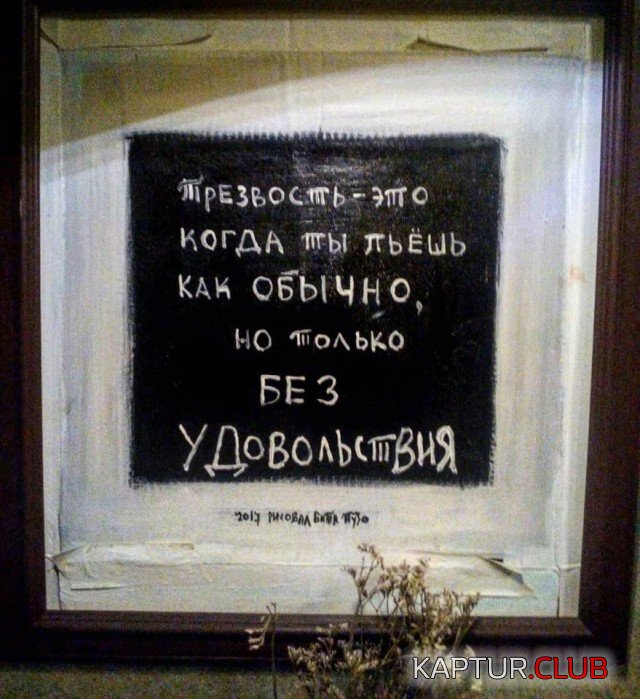 ТРЕЗВОСТЬ-ЭТО
КОГДА ТЫ ПЬЁШЬ
КАК ОБЫЧНО,
НО ТОЛЬКО
БЕЗ
УДОВОЛЬСТВИЯ
2017 РИСОВАЛ
KAPTUR.CLUB